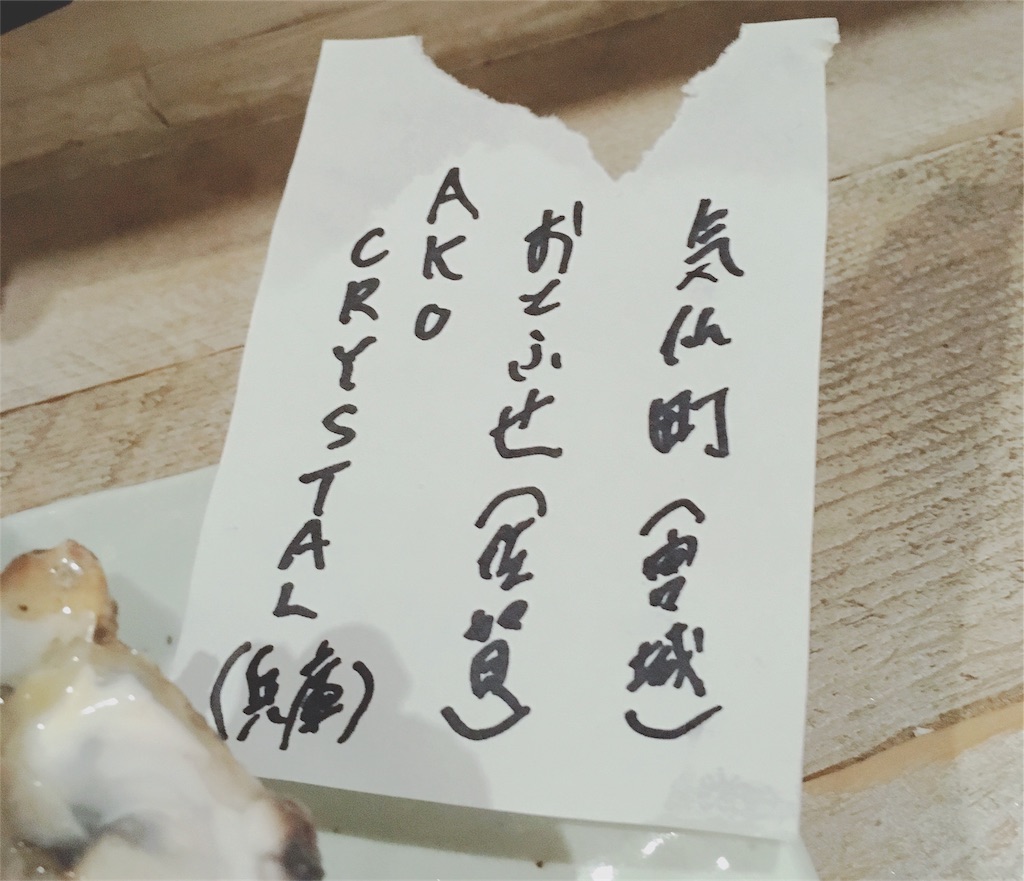 気仙町(宮城)
おとふせ(佐賀)
AKO
CRYSTAL
(兵庫)